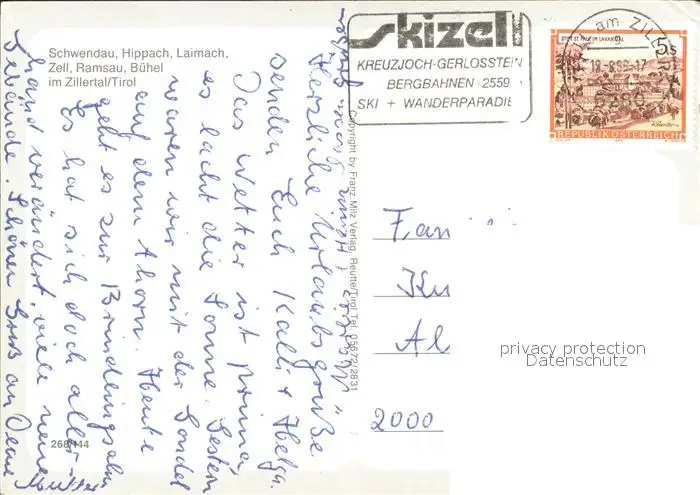 Schwendau, Hippach, Laimach,
Zell, Ramsau, Bühel
im Zillertal/Tirol
skizell
KREUZJOCH-GERLOSSTEIN
BERGBAHNEN 2559
SKI + WANDERPARADIE
am ZILLER
18-8.89-17
6280
STIFT ST. PAUL IM LAVANTTAL
5 S
REPUBLIK ÖSTERREICH
Herzliche Urlaubsgrüße
senden Euch Kalli + Helga.
Das Wetter ist prima,
es lacht die Sonne. Gestern
waren wir mit der Gondel
auf dem Ahorn. Heute
geht es zur Brindlingsalm
Es hat sich doch allerhand
verändert, viele neue
Gebäude. Schönen Gruß an Deine
Mutter
Copyright by Franz Milz Verlag, Reutte/Tirol Tel. 05672/2831
Fam
Ku
Al
2000
privacy protection
Datenschutz
268/144